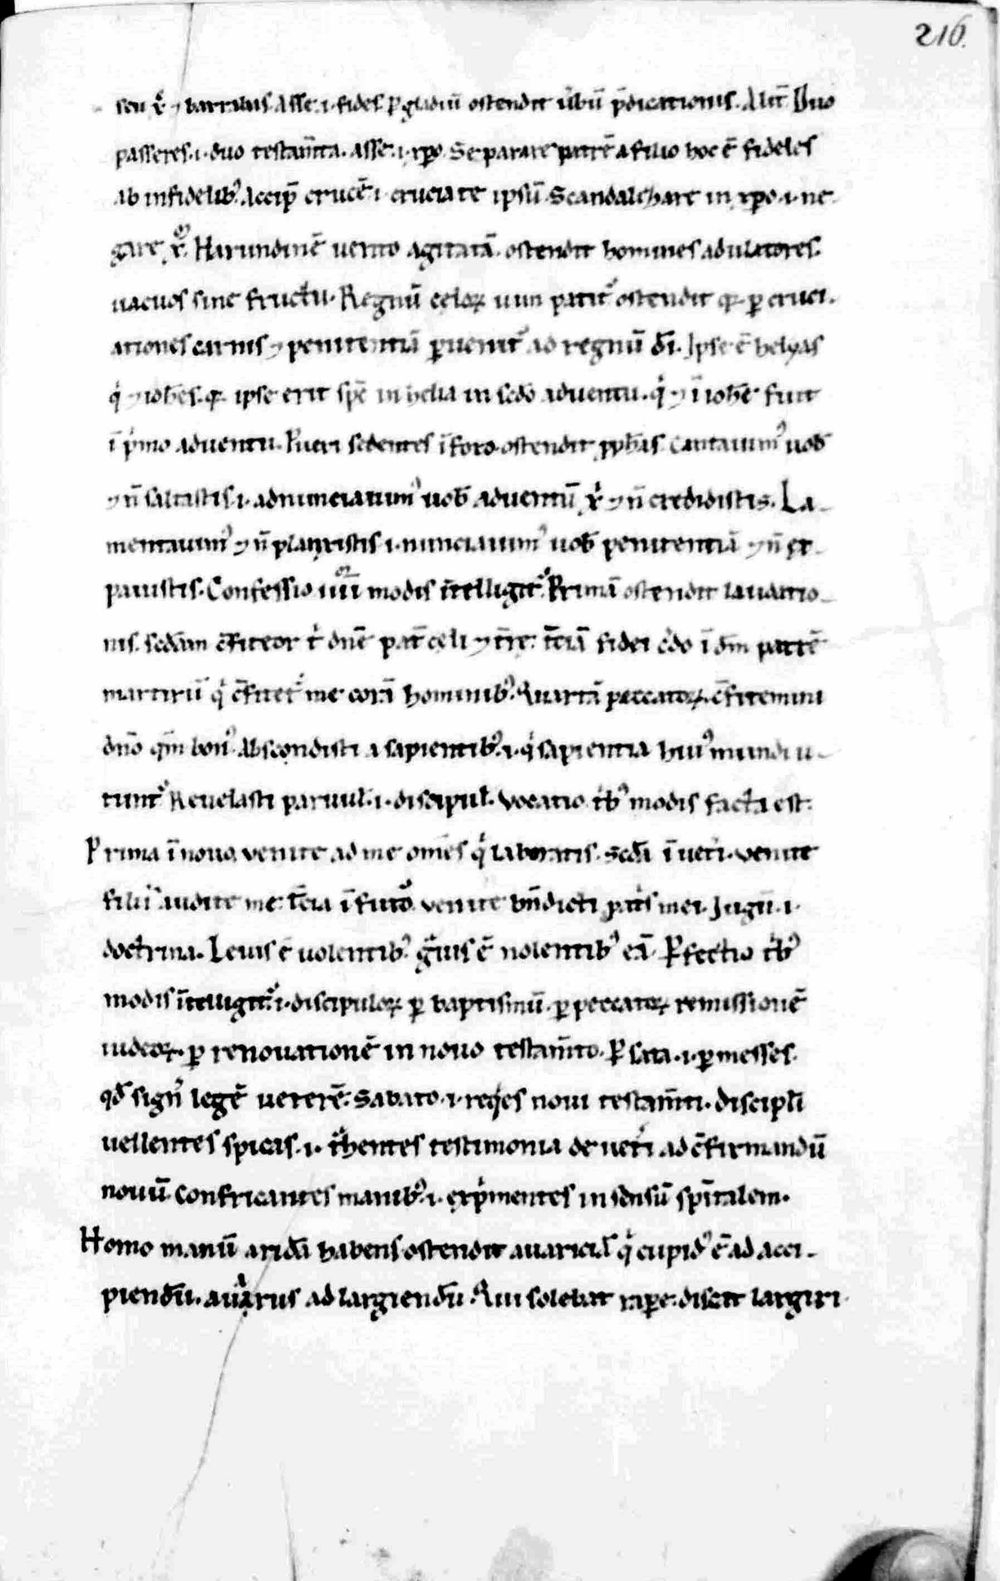 216.
seu xr̄ ⁊ barrabas. Asse .i. fides. p̄ gladiū ostendit ūbū p̄dicationis. Alit̄ Duo
passeres .i. duo testam̄ta. asse .i. xp̄o. Separare patrē a filio hoc ē fideles
ab infidelib⁹. Accip̄e crucē .i. cruciare ipsū. Scandalizare in xp̄o .i. ne
gare xr̄. Harundinē uento agitatā. ostendit homines adulatores.
uacuos sine fructu. Regnū celoꝝ uim patit᷑ ostendit qꝛ ꝑ cruci
ationes carnis ⁊ penitentiā ꝑuenit᷑ ad regnū dī. Ipse ē helyas
qͥ ⁊ ioh̄es. qꝛ ipse erit sp̄c in helia in scdo aduentu. qͥ ⁊ ī ioh̄e fuit
ī pͥmo aduentu. Pueri sedentes ī foro. ostendit ꝓph̄as. Cantauim⁹ uob̄
⁊ n̄ saltastis .i. adnunciauim⁹ uob̄ aduentū xr̄ ⁊ n̄ credidistis. La
mentauim⁹ ⁊ n̄ planxistis .i. nunciauim⁹ uob̄ penitentiā ⁊ n̄ er
pauistis. Confessio iiiiᵒʳ modis īntelligit᷑. Primā ostendit laudatio
nis. scdam c̄fiteor tͥ dn̄e pat̄ celi ⁊ tr̄e. t̄ciā fidei c̄do ī dm̄ patrē
martirū qͥ c̄fitet᷑ me corā hominib⁹. Quartā peccatoꝝ. c̄fitemini
dn̄o qm̄ bon⁹. Abscondisti a sapientib⁹ .i. qͥ sapientia hui⁹ mundi u
tunt᷑. Reuelasti paruul̄ .i. discipul̄. Vocatio tͥb⁹ modis facta est.
Prima ī nouo. uenite ad me om̄es qͥ laboratis. Scdā ī uetͥi. uenite
filii audite me. t̄cia ī futo. uenite bn̄dicti patͥs mei. Jugū .i.
doctrina. Leuis ē uolentib⁹. gͣuis ē nolentib⁹ eā. Ꝑfectio tͥb⁹
modis īntelligit᷑ .i. discipuloꝝ ꝑ baptismū. ꝑ peccatoꝝ remissionē
iudeoꝝ. ꝑ renouationē in nouo testam̄to. Ꝑ sata .i. ꝑ messes
qd̄ sign̄ legē ueterē. Sabato .i. reqͥes noui testam̄ti. discipl̄i
uellentes spicas .i. tͣhentes testimonia de uetͥi ad c̄firmandū
nouū. Confricantes manib⁹ .i. exp̄mentes in sensū sp̄italem.
Homo manū aridā habens ostendit auariciā qͥ cupid⁹ ē ad acci
piendū. auarus ad largiendū. Qui solebat rape. discit largiri